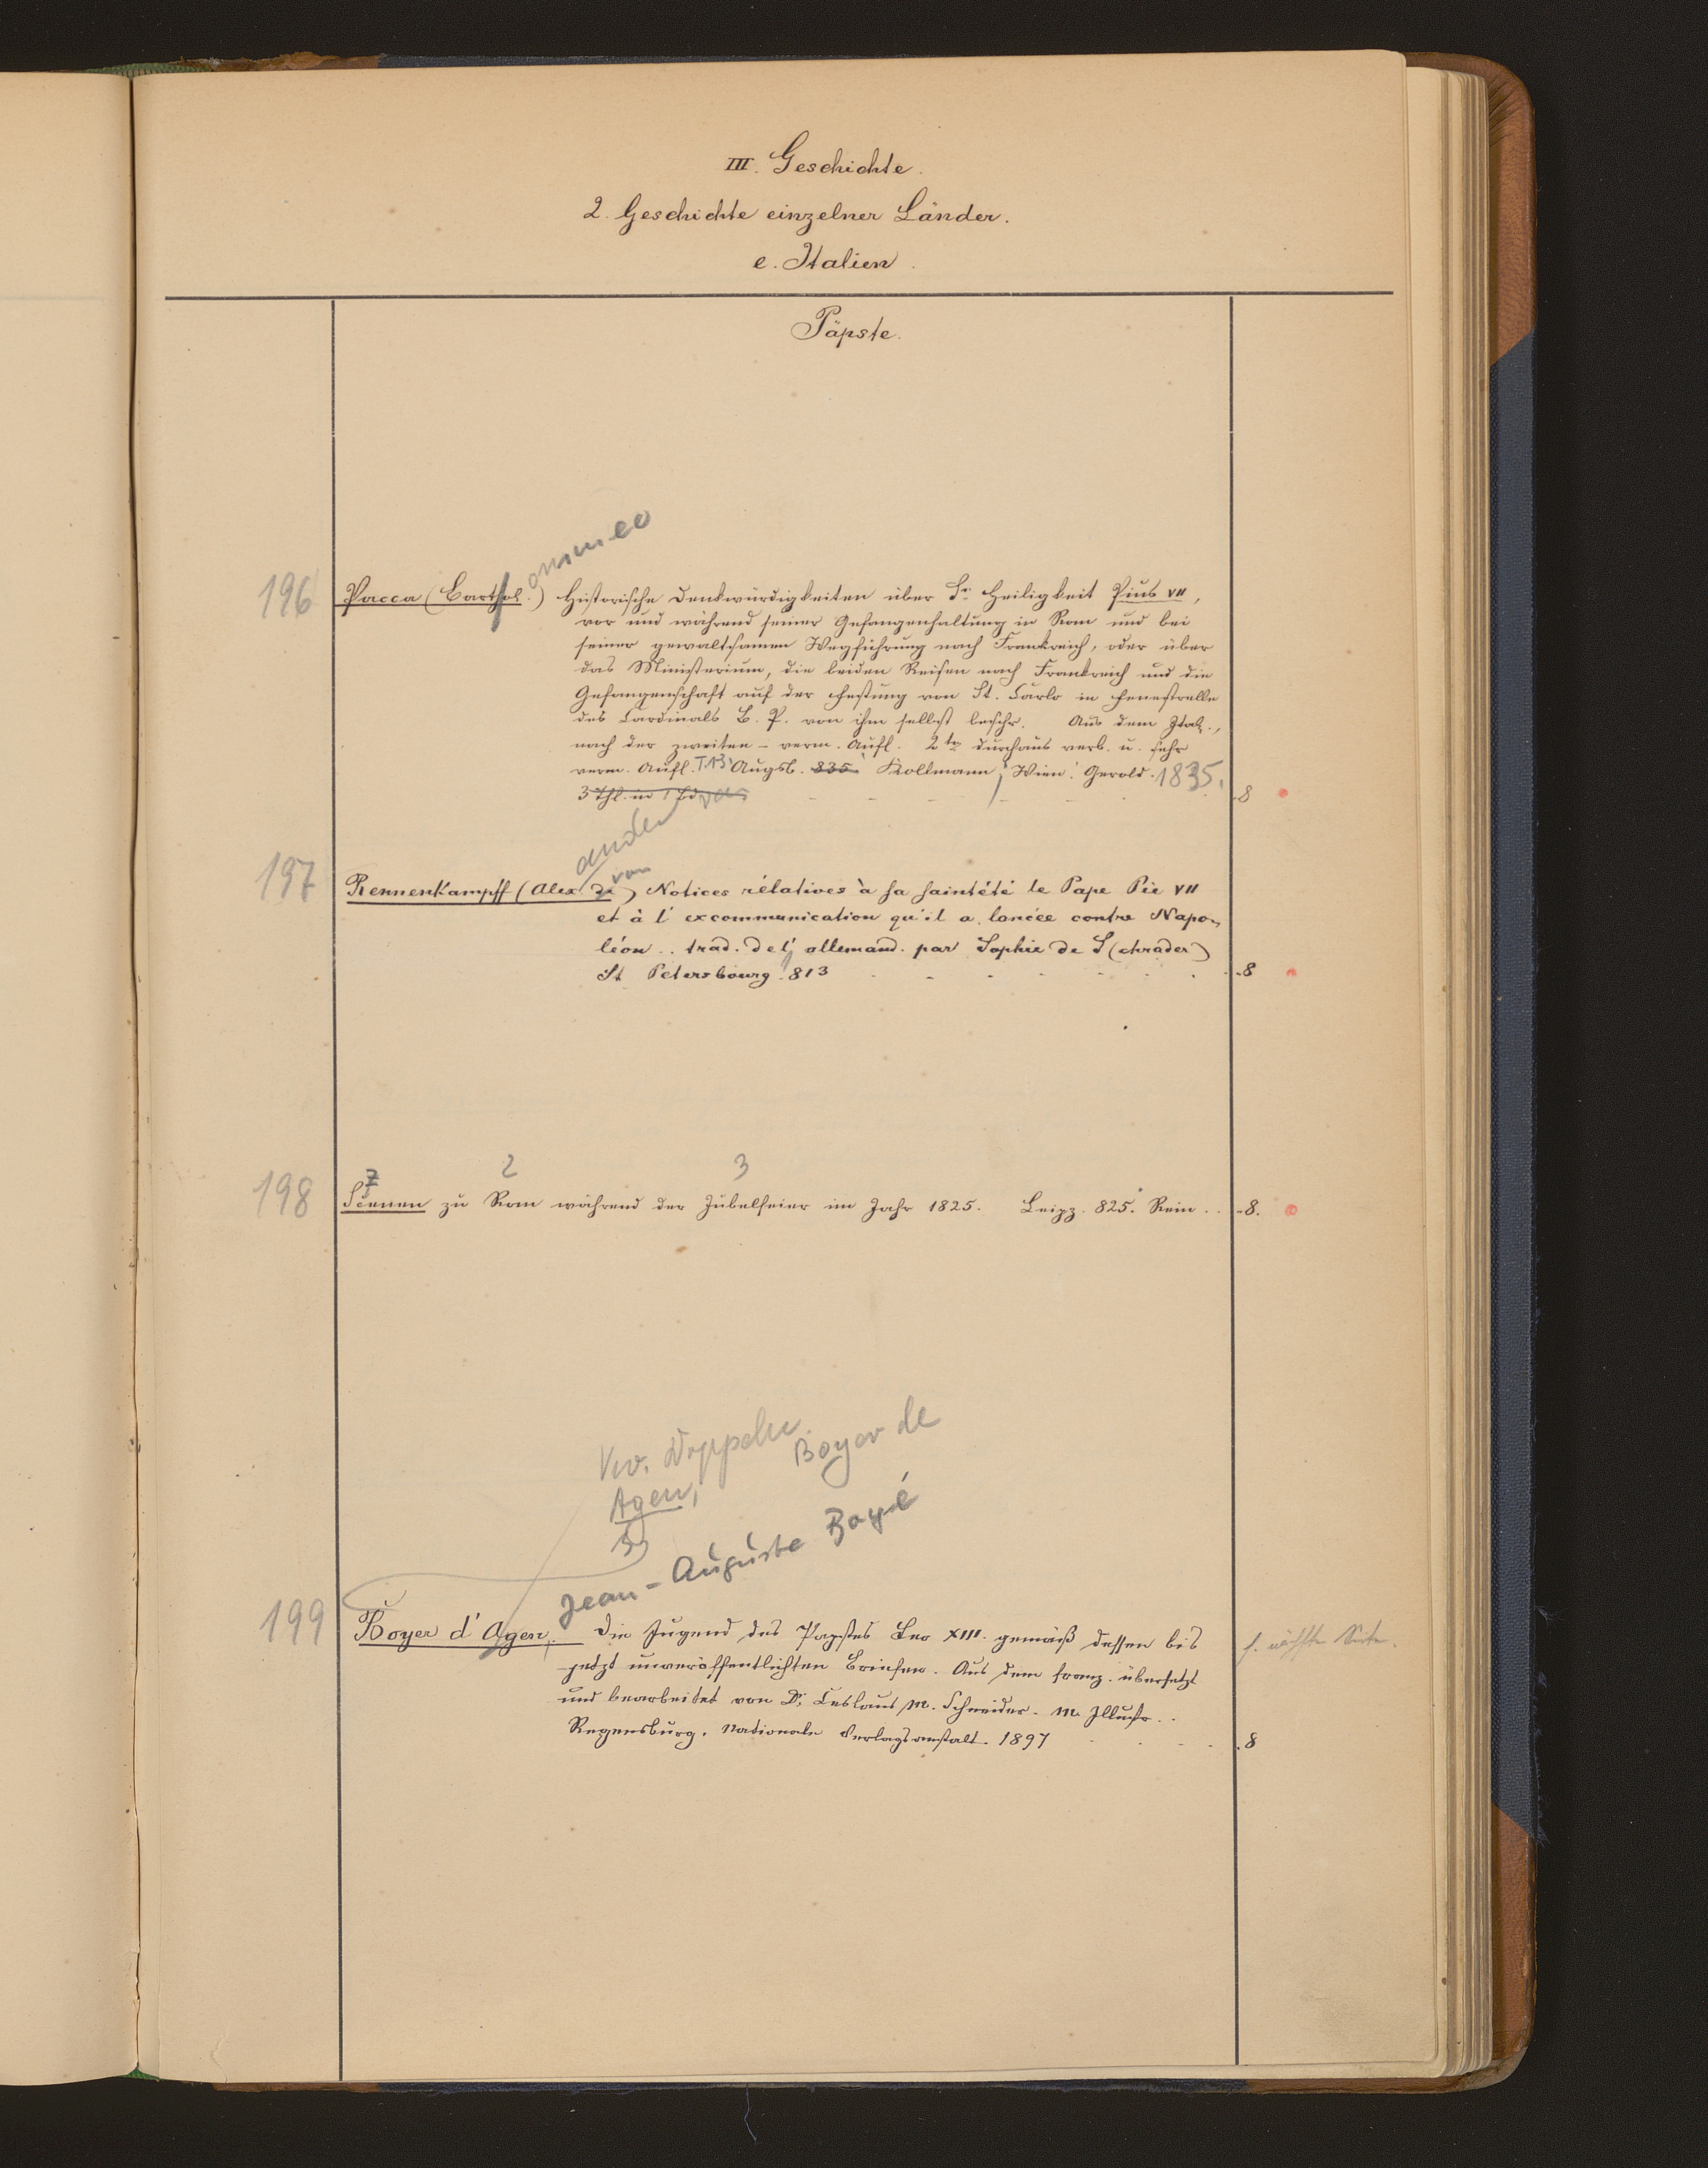 III. Geschichte.
2. Geschichte einzelner Länder.
e. Italien.
Päpste.
ommeo
196 Pacca (Barthol.) Historische Denkwürdigkeiten über Sr. Heiligkeit Pius VII,
vor und während seiner Gefangenhaltung in Rom und bei
seiner gewaltsamen Wegführung nach Frankreich, oder über
das Ministerium, die beiden Reisen nach Frankreich und die
Gefangenschaft auf der Festung von St. Carlo in Fenestrelle
des Cardinals B. P. von ihm selbst beschr. Aus dem Ital.,
nach der zweiten - verm. Aufl. 2te durchaus verb. u. sehr
verm. Aufl. T. 1-3 Augsb. 835. Kollmann; Wien: Gerold. 1835.
3 Thl. in 1 Bd - 8
ander
von
197 Rennenkampff (Alex. de) Notices rélatives à sa saintété le Pape Pie VII
et à l'excommunication qu'il a lancée contre Napo-
léon .. trad. de l'allemand. par Sophie de S(chrader)
St Petersbourg 813 - 8
z 2 3
198 Scenen zu Rom während der Jubelfeier im Jahr 1825. Leipz. 825. Rein .. - 8.
Boyer de
Agen,
Jean-Auguste Boyé
199 Boyer d'Agen, Die Jugend des Papstes Leo XIII. gemäß dessen bis s. nächste Seite.
jetzt unveröffentlichten Briefen. Aus dem franz. übersetzt
und bearbeitet von Dr. Ceslaus M. Schneider. M. Illustr..
Regensburg. Nationale Verlagsanstalt. 1897 . 8